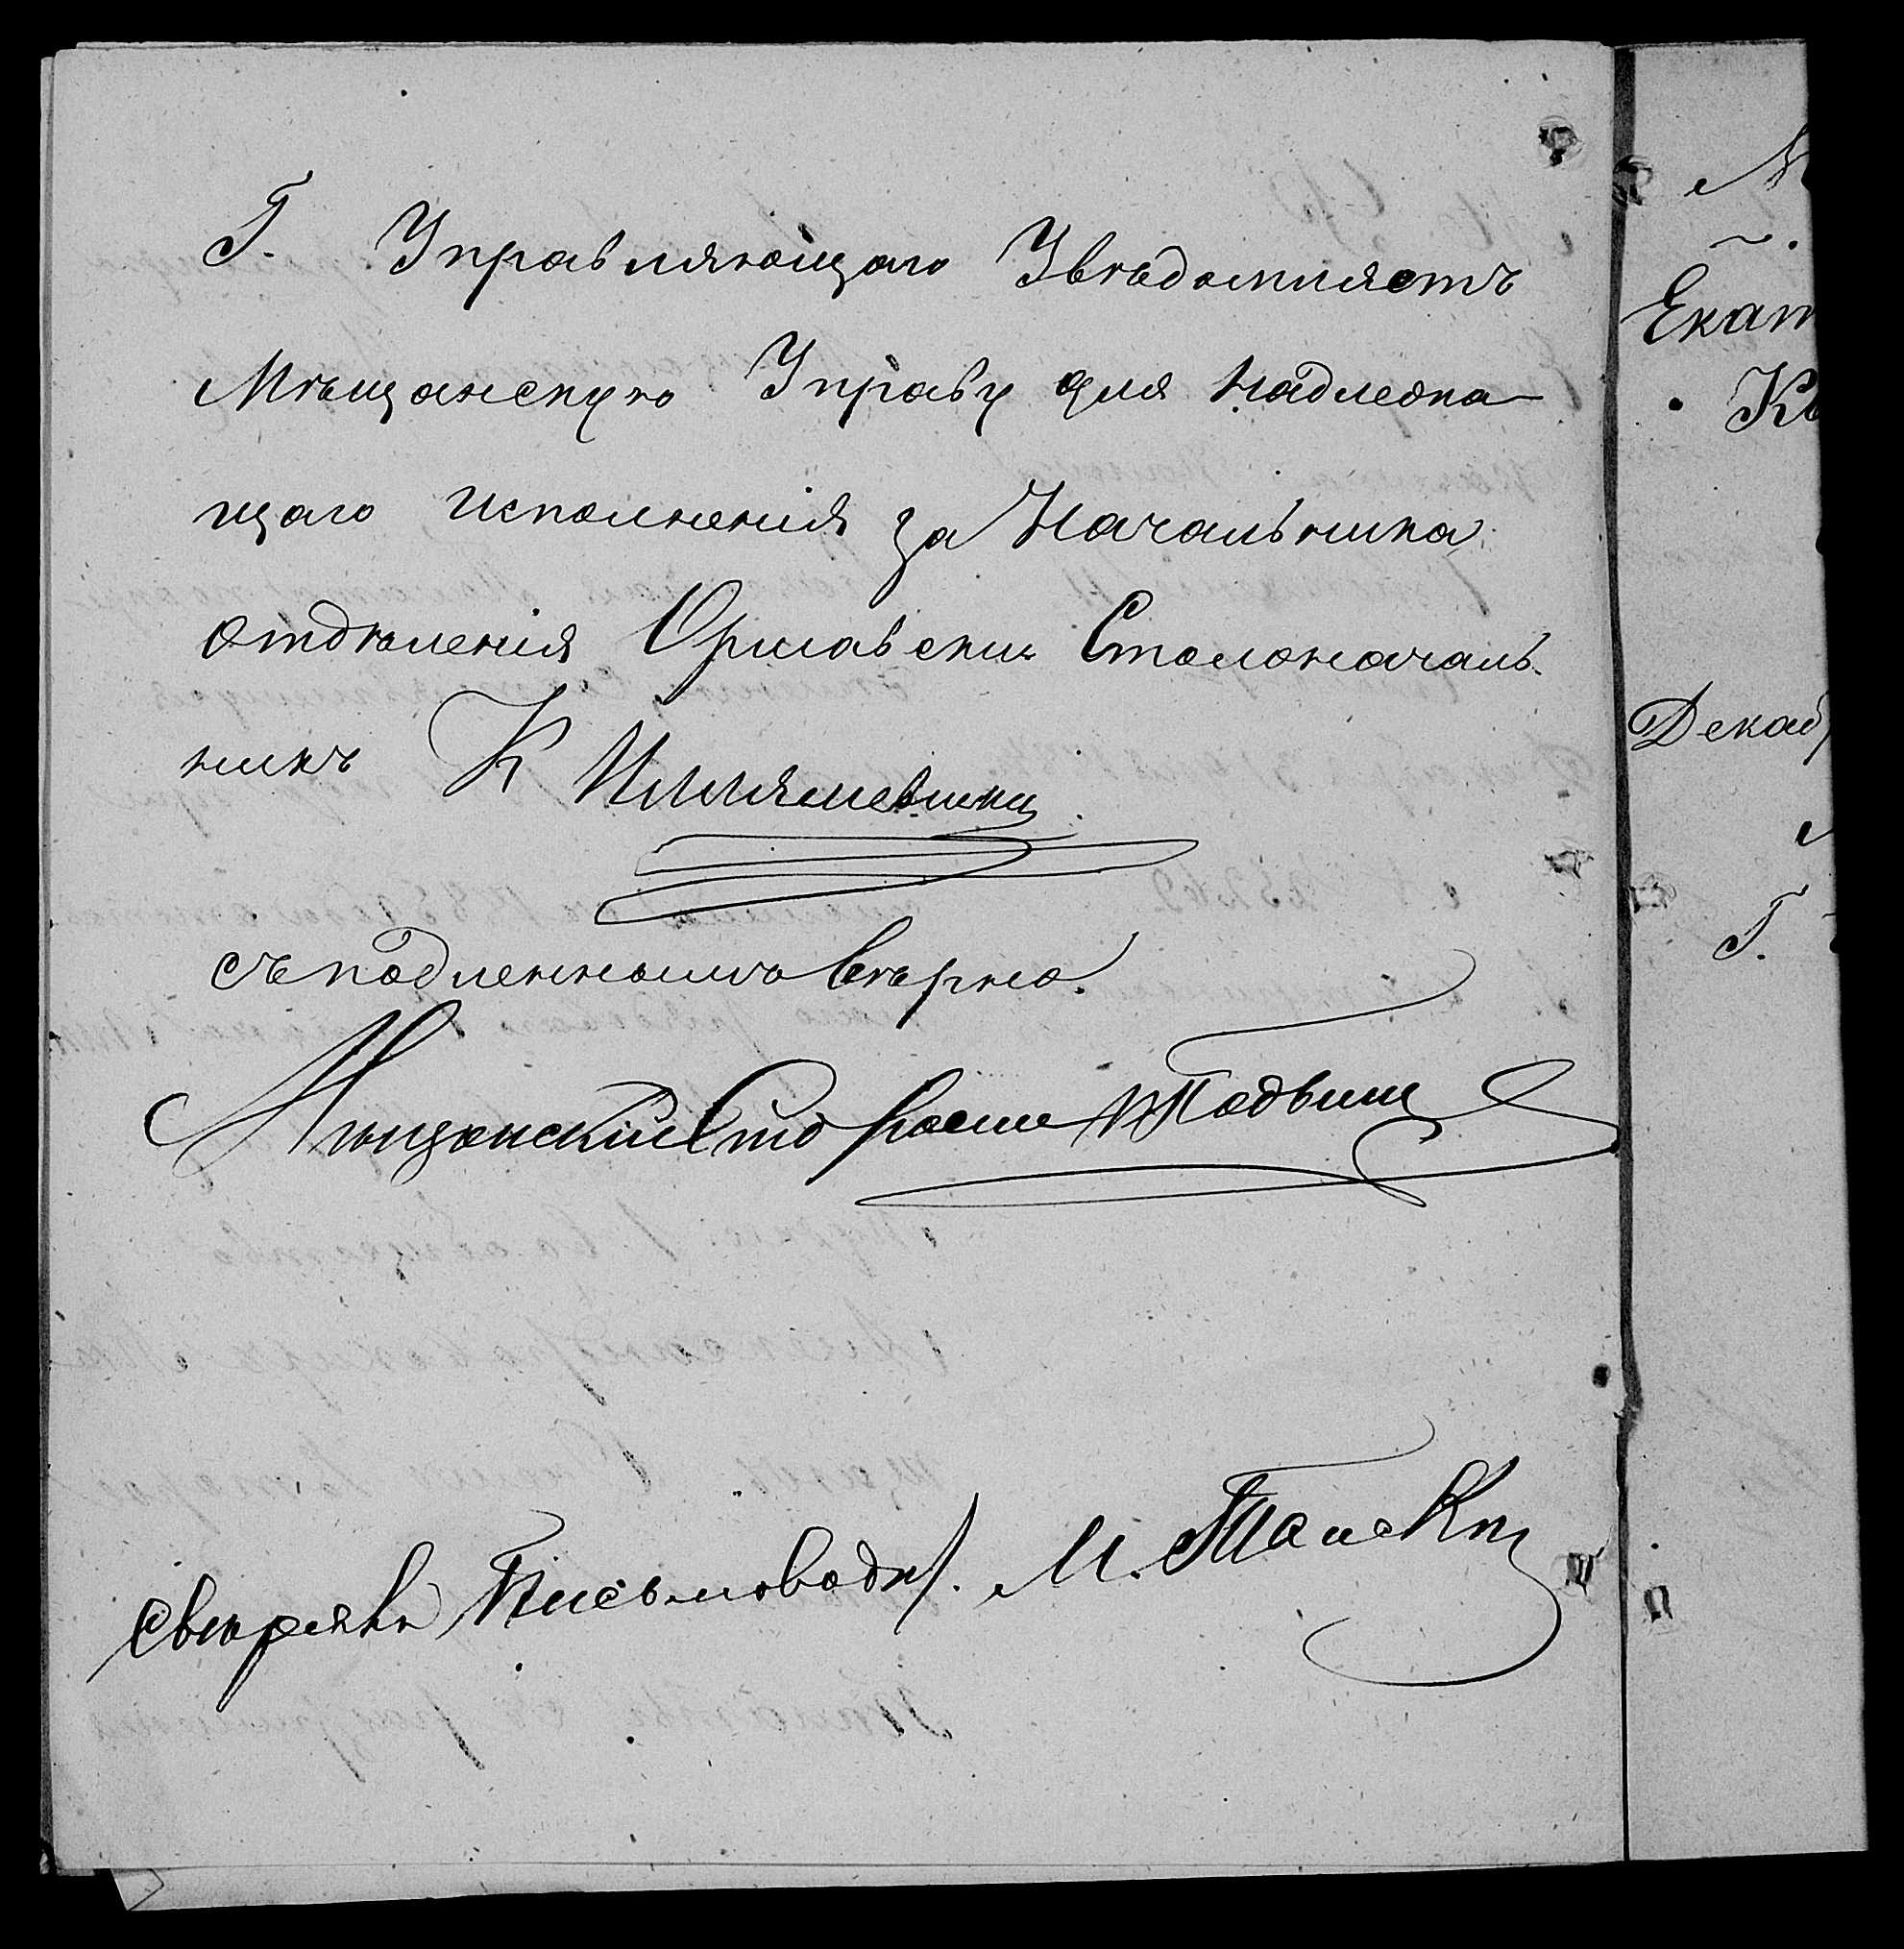 Г. Управляющаго Увѣдомляетъ
Мѣщанскую Управу для надлежа-
щаго исполненія за Начальника
отдѣленія Орлавскій Столоначаль-
никъ К
съ подленнымъ вѣрно.
Мѣщанскій Староста
свѣрялъ Письмовод. М.
М
Екат
Декаб
Г.